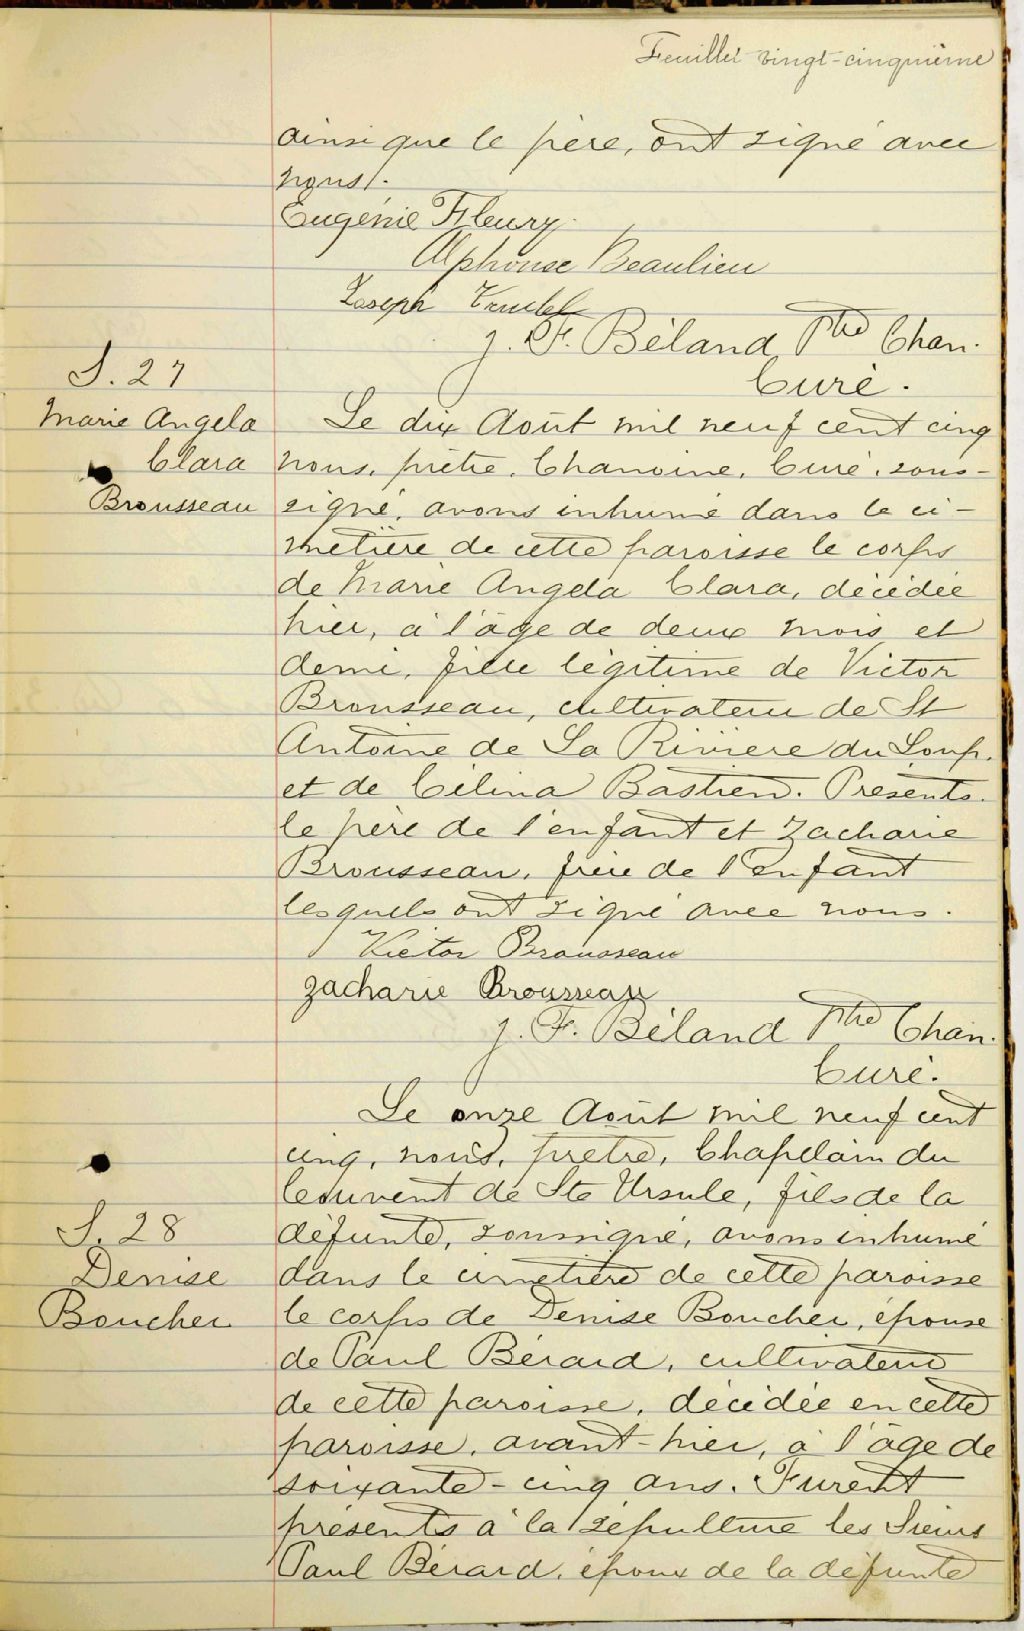 Feuillet vingt-cinquième
ainsi que le père, ont signé avec
nous.
Eugénie Fleury.
Alphonse Beaulieu
Joseph Trudel
J. F. Béland Ptre Chan.
Curé.
S. 27
Marie Angela
Clara
Brousseau
Le dix Août mil neuf cent cinq
nous, prêtre, Chanoine, Curé, sous-
signé, avons inhumé dans le ci-
metière de cette paroisse le corps
de Marie Angela Clara, décédée
hier, à l'âge de deux mois et
demi, fille légitime de Victor
Brousseau, cultivateur de St
Antoine de La Rivière du Loup,
et de Célina Bastien. Présents
le père de l'enfant et Zacharie
Brousseau, frère de l'enfant
lesquels ont signé avec nous.
Victor Brousseau
Zacharie Brousseau
J. F. Béland Ptre Chan.
Curé.
S. 28
Denise
Boucher
Le onze Août mil neuf cent
cinq, nous, prêtre, Chapelain du
Couvent de Ste Ursule, fils de la
défunte, soussigné, avons inhumé
dans le cimetière de cette paroisse
le corps de Denise Boucher, épouse
de Paul Bérard, cultivateur
de cette paroisse, décédée en cette
paroisse, avant-hier, à l'âge de
soixante-cinq ans. Furent
présents à la sépulture les Sieurs
Paul Bérard, époux de la défunte